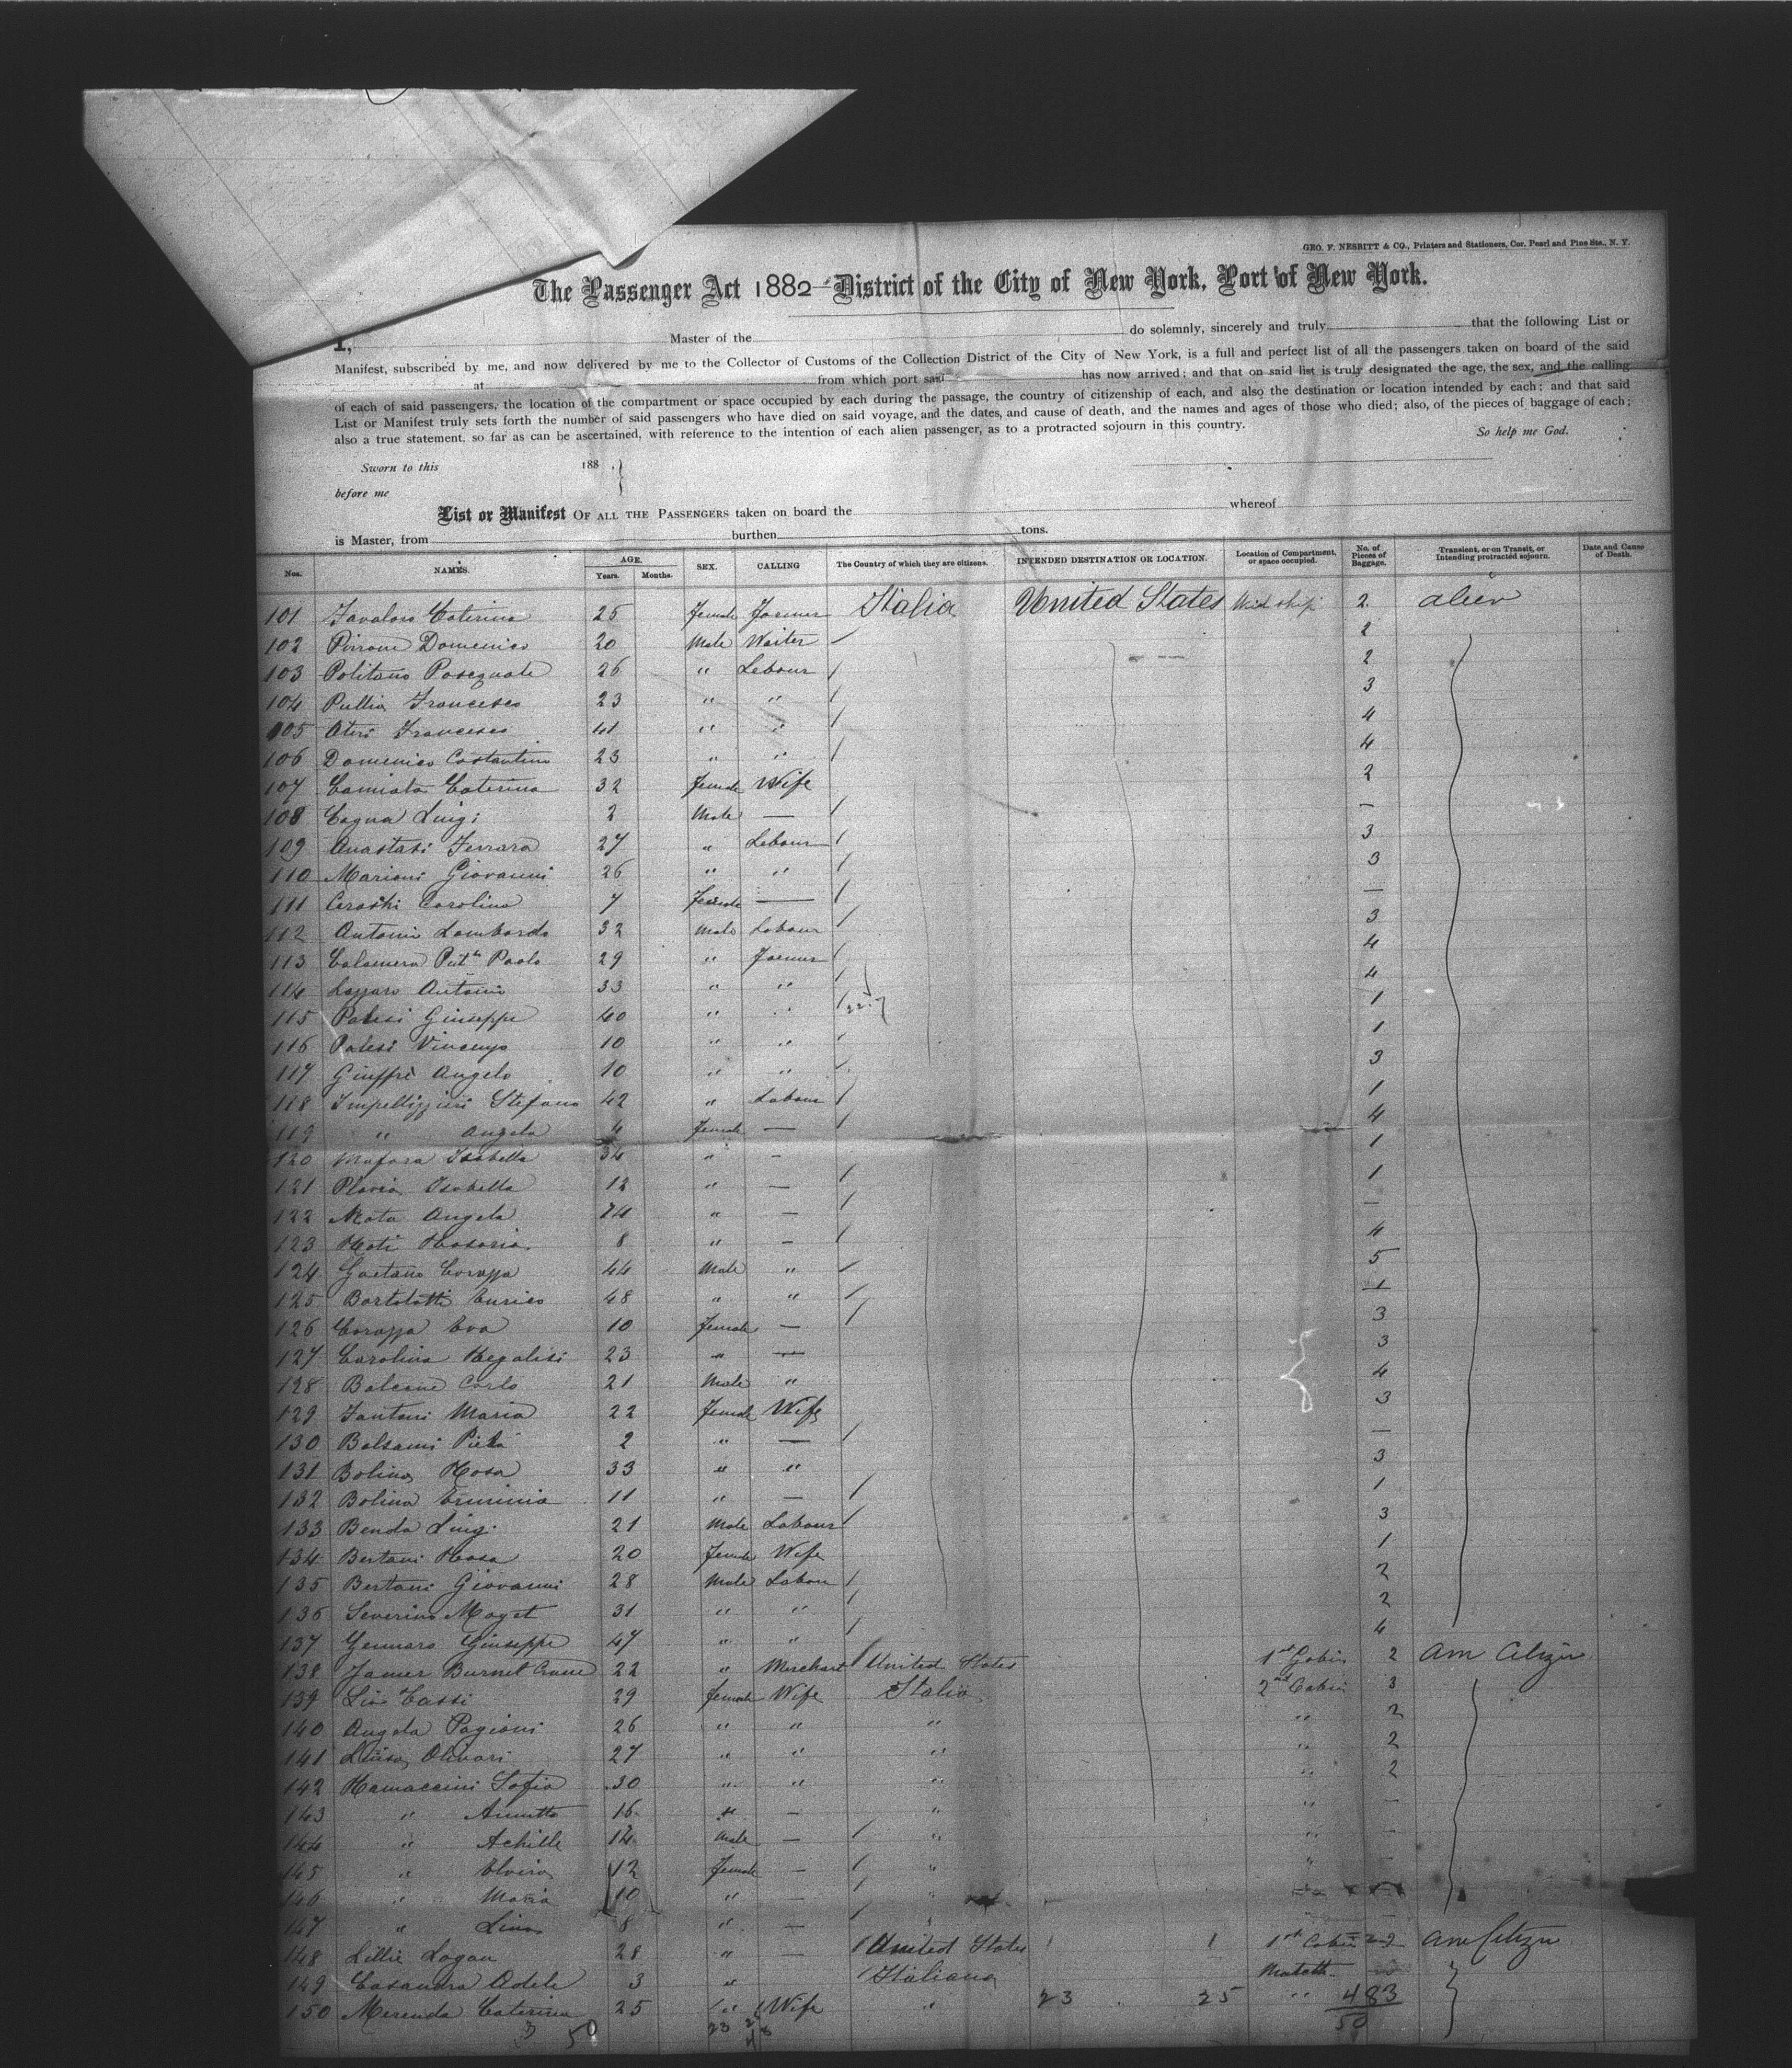 GEO. F. NESBITT & CO., Printers and Stationers, Cor. Pearl and Pine Sts., N. Y.
The Passenger Act 1882—District of the City of New York, Port of New York.
I, Master of the do solemnly, sincerely and truly that the following List or
Manifest, subscribed by me, and now delivered by me to the Collector of Customs of the Collection District of the City of New York, is a full and perfect list of all the passengers taken on board of the said
at from which port said has now arrived; and that on said list is truly designated the age, the sex, and the calling
of each of said passengers, the location of the compartment or space occupied by each during the passage, the country of citizenship of each, and also the destination or location intended by each; and that said
List or Manifest truly sets forth the number of said passengers who have died on said voyage, and the dates, and cause of death, and the names and ages of those who died; also, of the pieces of baggage of each;
also a true statement, so far as can be ascertained, with reference to the intention of each alien passenger, as to a protracted sojourn in this country. So help me God.
Sworn to this 188 .
before me
List or Manifest OF ALL THE PASSENGERS taken on board the whereof
is Master, from burthen tons.
Nos. NAMES. AGE. Years. Months. SEX. CALLING The Country of which they are citizens. INTENDED DESTINATION OR LOCATION. Location of Compartment, or space occupied. No. of Pieces of Baggage. Transient, or on Transit, or Intending protracted sojourn. Date and Cause of Death.
101 Caterina 25 Female Italia United States 2
102 Pirrone Domenico 20 Male Waiter 2
103 Politano Pasequale 26 " Lebour 2
104 Pullia Francesco 23 " " 3
105 Francesco 41 " " 4
106 Domenico Costantino 23 " " 4
107 Caterina 32 Female Wife 2
108 Luigi 2 Male — —
109 Anastasi Ferrara 27 " Lebour 3
110 Mariani Giovanni 26 " " 3
111 Carolina 7 Female — —
112 Antonio Lombardo 32 Male Labour 3
113 Paolo 29 " 4
114 Lazzaro Antonio 33 " " 4
115 Giuseppe 40 " " 1
116 Vincenzo 10 " " 1
117 Giuffrè Angelo 10 " " 3
118 Impellizzieri Stefano 42 " Labour 1
119 " Angela 4 Female — 4
120 Isabella 34 " - 1
121 Isabella 12 " — 1
122 Angela " — —
123 Rosaria 8 " - 4
124 Gaetano Corazza 44 Male " 5
125 Bortolotti Enrico 48 " " 1
126 Corazza Eva 10 Female — 3
127 Carolina Regalisi 23 " — 3
128 Carlo 21 Male " 4
129 Fantoni Maria 22 Female Wife 3
130 Balsami 2 " — —
131 Bolina Rosa 33 " " 3
132 Bolina Erminia 11 " — 1
133 Benda Luigi 21 Male Labour 3
134 Bertani Rosa 20 Female Wife 1
135 Bertani Giovanni 28 Male Labour 2
136 Severino Maget 31 " " 2
137 Gennaro Giuseppe 47 " " 4
138 James Burnet 22 " Merchant United States 1st Cabin 2 Am Citizen
139 Cassi 29 Female Wife Italia 2nd Cabin 3
140 Angela Pagioni 26 " " " " 2
141 Luisa Olivari 27 " " " " 2
142 Ramaccini Sofia 30 " " " " 2
143 " Annetta 16 " — " " —
144 " Achille 14 Male — " " —
145 " Elvira 12 Female — " " —
146 " Maria 10 " — "
147 " Lina 8 " — "
148 Lillie Logan 28 " — United States 1 1st Cabin Am Citizen
149 Casandra Adele 3 " Italiana
150 Merenda Caterina 25 " Wife " 23 25 " 483
50 23 50